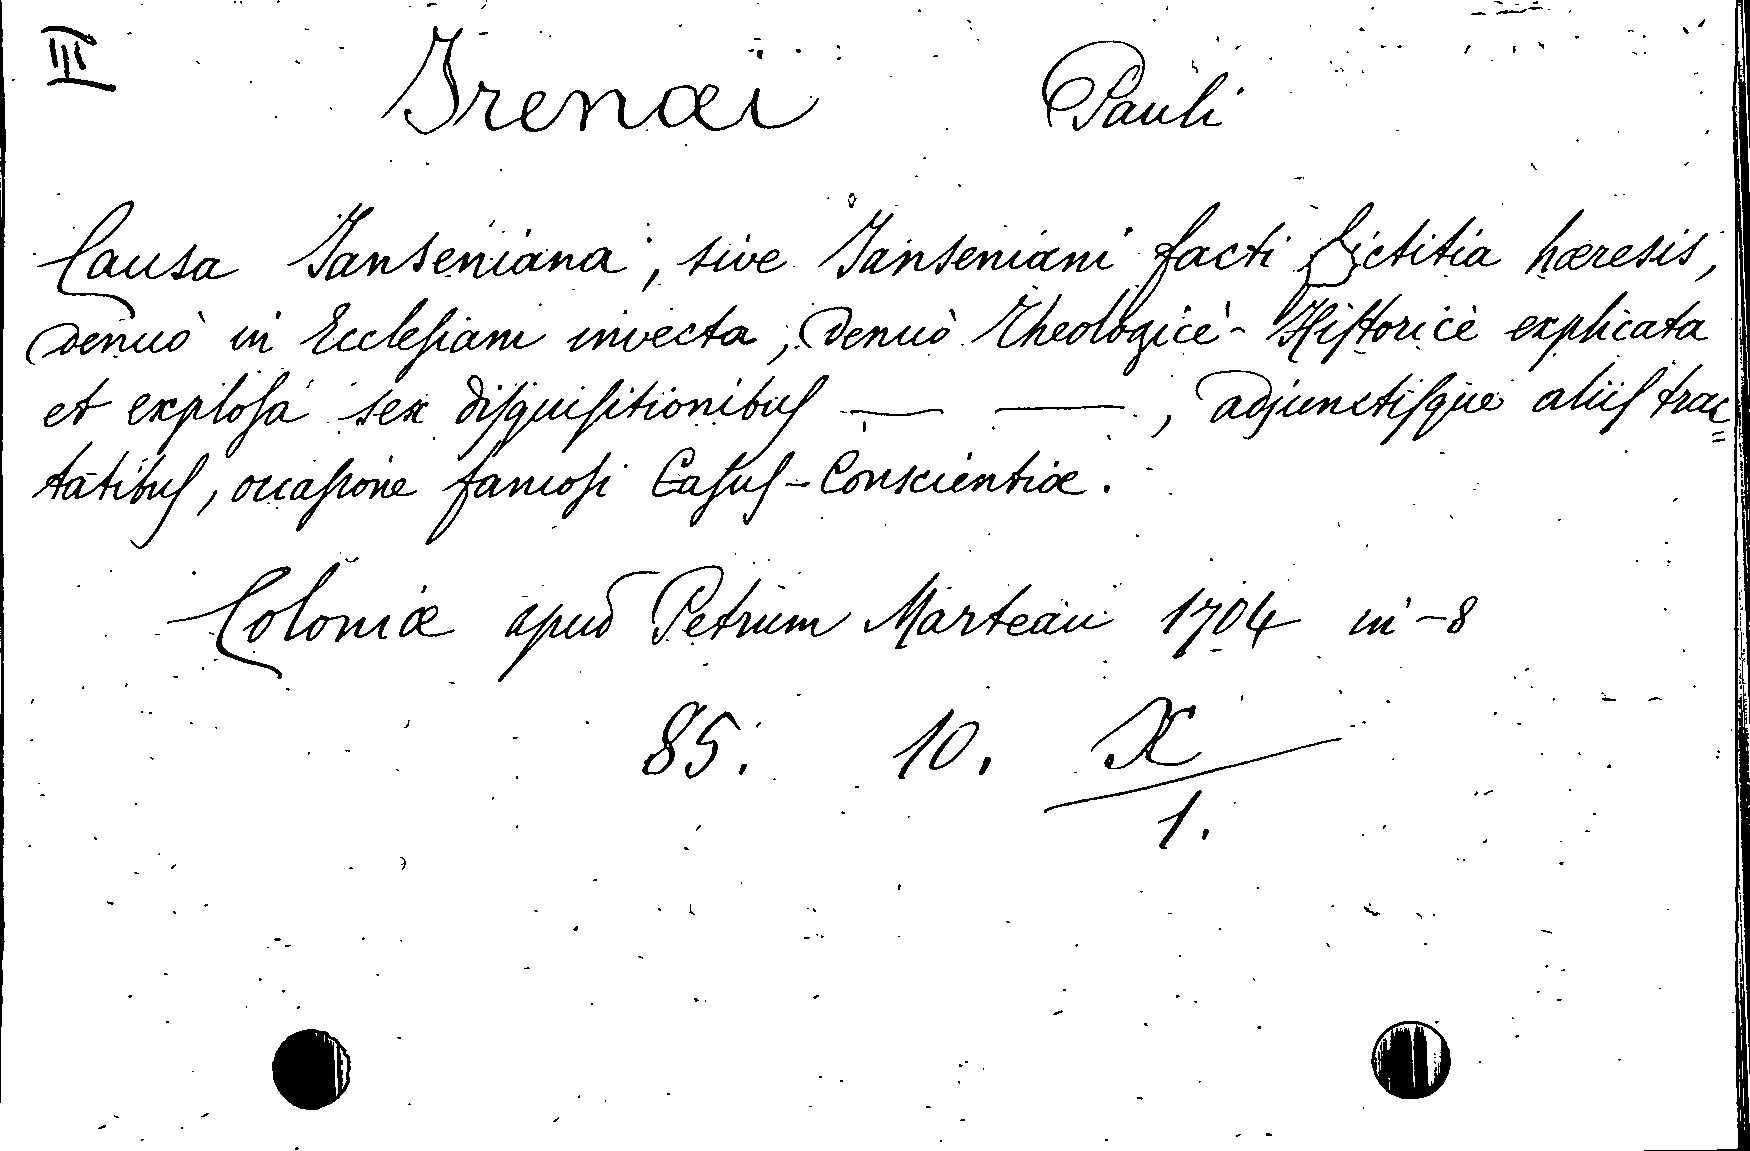 III
Irenæi Pauli
Causa Janseniana, sive Janseniani facti fictitia hæresis,
denuò in Ecclesiam invecta, denuò Theologicè-Historicè explicata
et explosa sex disquisitionibus — —, adjunctisque aliis trac=
tatibus, occasione famosi Casus-Conscientiæ.
Coloniæ apud Petrum Marteau 1704 in-8
85. 10. X
1.